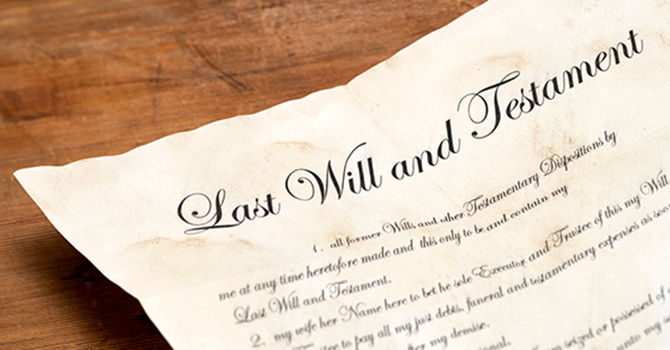 Last Will and Testament
1. all former Wills and other Testamentary Dispositions by
me at any time heretofore made and this only to be and contain my
Last Will and Testament.
2. my wife her Name here to bet he sole Executor and Trustee of this my Will
to pay all my just debts, funeral and testamentary expenses as
after my demise.
seized or possessed of
unto my